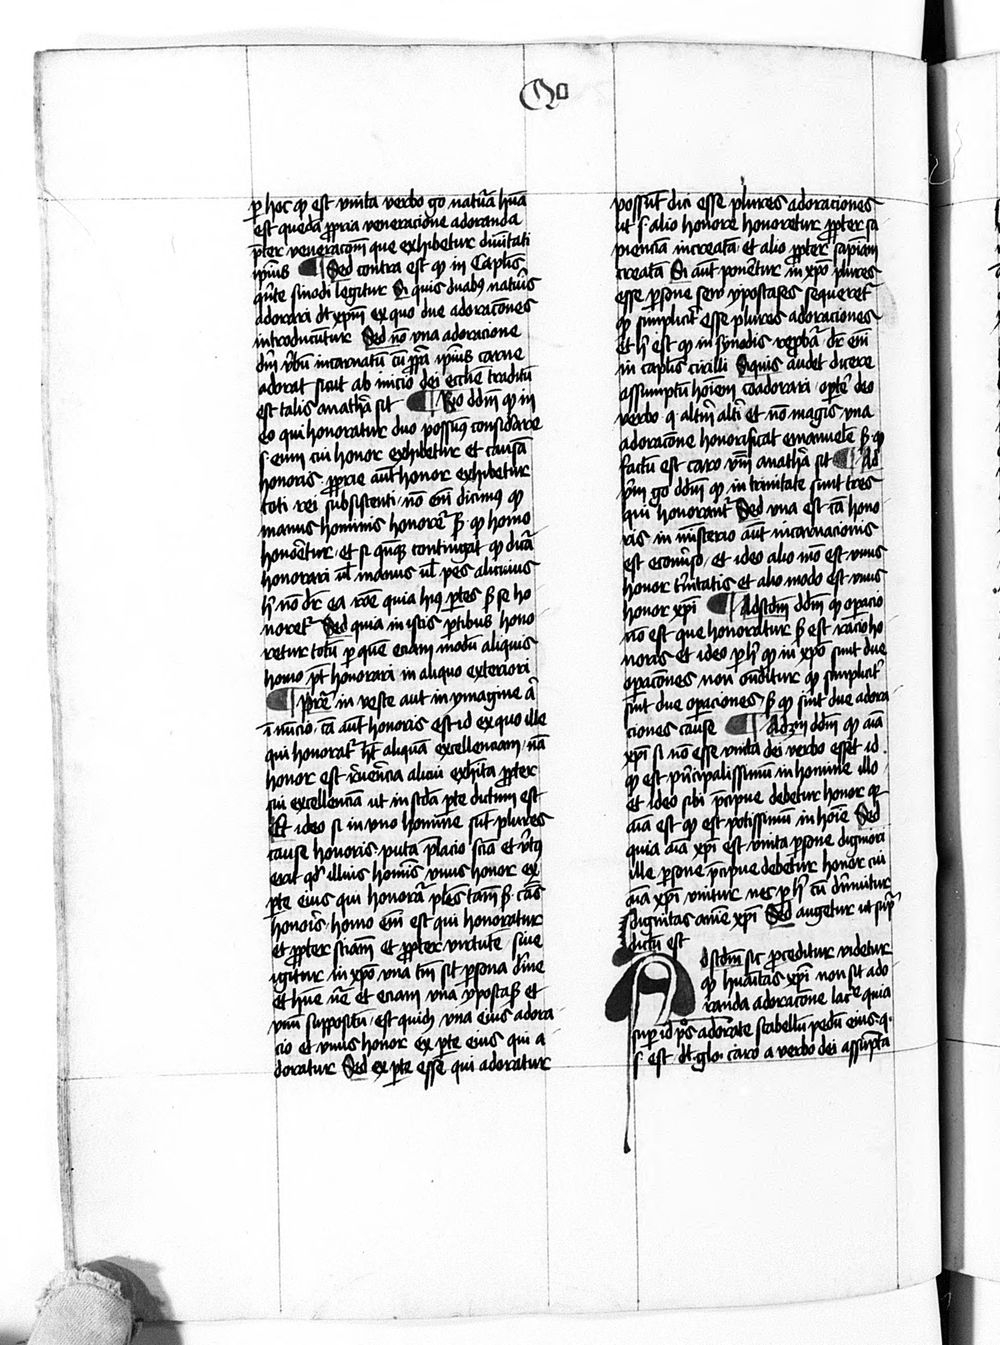 Qo
ꝑ hoc ꝙ est vnita verbo gͦ natūa huāa
est quedā ꝓpria veneracione adoranda
p̄ter veneracōm que exhibetur diuītati
ip̄ius ¶ Sed contra est ꝙ in Caplis
qīte sinodi legitur Si quis duabꝯ natūis
adorari dt̄ xp̄m ex quo due adoracōnes
introducūtur Sed nō vna adoracione
dm̄ vbū incarnatū cū ꝓp̄a ip̄ius carne
adorat sicut ab inicio dei eccliē traditū
est talis anathā sit ¶ Rͦ dd̄m ꝙ in
eo qui honoratur duo possūꝯ considerare
s. eum cui honor exhibetur et causā
honoris ꝓprie aut̄ honor exhibetur
toti rei subsistenti nō em̄ dicimꝯ ꝙ
manus hominis honoret̄ sꝫ ꝙ homo
honōetur et si qn̄qꝫ contingat ꝙ dicāt
honorari ul̄ manus ul̄ pes alicuius
h̄ nō dr̄ ea rōe quia hiꝯ ꝑtes ꝑ se ho
noret̄ Sed quia in istis ꝑtibus hono
retur totū ꝑ quē eciam modū aliquis
homo pt̄ honorari in aliquo exteriori
¶ in veste aut in ymagine ā
ī nūcio cā aut̄ honoris est id ex quo ille
qui honorat̄ hꝫ aliquā excellenciam nā
honor est reūencia alicui exhīta ꝓpter
sui excellenciā ut in scd̄a ꝑte dictum est
Et ideo si in vno homine sūt plures
cause honoris puta p̄lacio sciā et v̄tꝯ
erit qd̄ illius hoīs vnus honor ex
ꝑte eius qui honorāt plēs tām̄ sꝫ cās
honoīs homo em̄ est qui honoratur
et ꝓpter sciam et ꝓpter virtutē sine
igitur in xp̄o vna tm̄ sit ꝑsona dīne
et hūe nē et eciam vna ypostasꝫ et
vnū suppositū est quidꝫ vna eius adora
cio et vnus honor ex ꝑte eius qui a
doratur Sed ex ꝑte esse qui adoratur
possūt dici esse plures adoraciones
ut s. alio honore honoretur ꝓpter sa
pienciā increatā et alio ꝓpter sapiam
creatā Si aut̄ ponētur in xp̄o plures
esse ꝑsone seu ypostases sequeret̄
ꝙ simplicit̄ esse plures adoraciones
Et h̄ est ꝙ in synodis reꝓbat̄ dr̄ em̄
in caplis cirilli Siquis audet dicere
assumptū hoīem coadorari opte̊ deo
verbo q̄ alt̄m alt̄i et nō magis vna
adoracōne honorificat emanuelē sꝫ ꝙ
factū est caro v̄m anathā sit ¶ Ad
p̄m gͦ dd̄m ꝙ in trinitate sunt tres
qui honorant̄ Sed vna est cā hono
ris in mīsterio aut̄ incarnacionis
est econūso et ideo alio mō est vnus
honor t̄nitatis et alio modo est vnus
honor xp̄i ¶ Adscd̄m dd̄m ꝙ opacio
nō est que honoratur sꝫ est racio ho
noris et ideo ꝑ h̄ ꝙ in xp̄o sunt due
oꝑacōnes non on̄ditur ꝙ simplicit̄
sint due oꝑaciones sꝫ ꝙ sint due adora
ciones cause ¶ Ad3m dd̄m ꝙ aīa
xp̄i si nō esse vnita dei verbo esset id
ꝙ est p̄ncipalissimū in homine illo
et ideo sibi p̄cipue debetur honor qꝛ
aīa est ꝙ est potissimū in hoīe Sed
quia aīa xp̄i est vnita ꝑsone digniori
ille ꝑsone p̄cipue debetur honor cui
aīa xp̄i vnitur nec ꝑ h̄ tn̄ diminuitur
dignitas anime xp̄i Sed augetur ut sup̄
dictū est
Adscd̄m sic ꝓceditur videtur
ꝙ huāitas xp̄i non sit ado
randa adoracōne lat̄e quia
sup̄ id p̄s adorate scabellū pedū eius q.
s. est dt̄ glo. caro a verbo dei assūpta